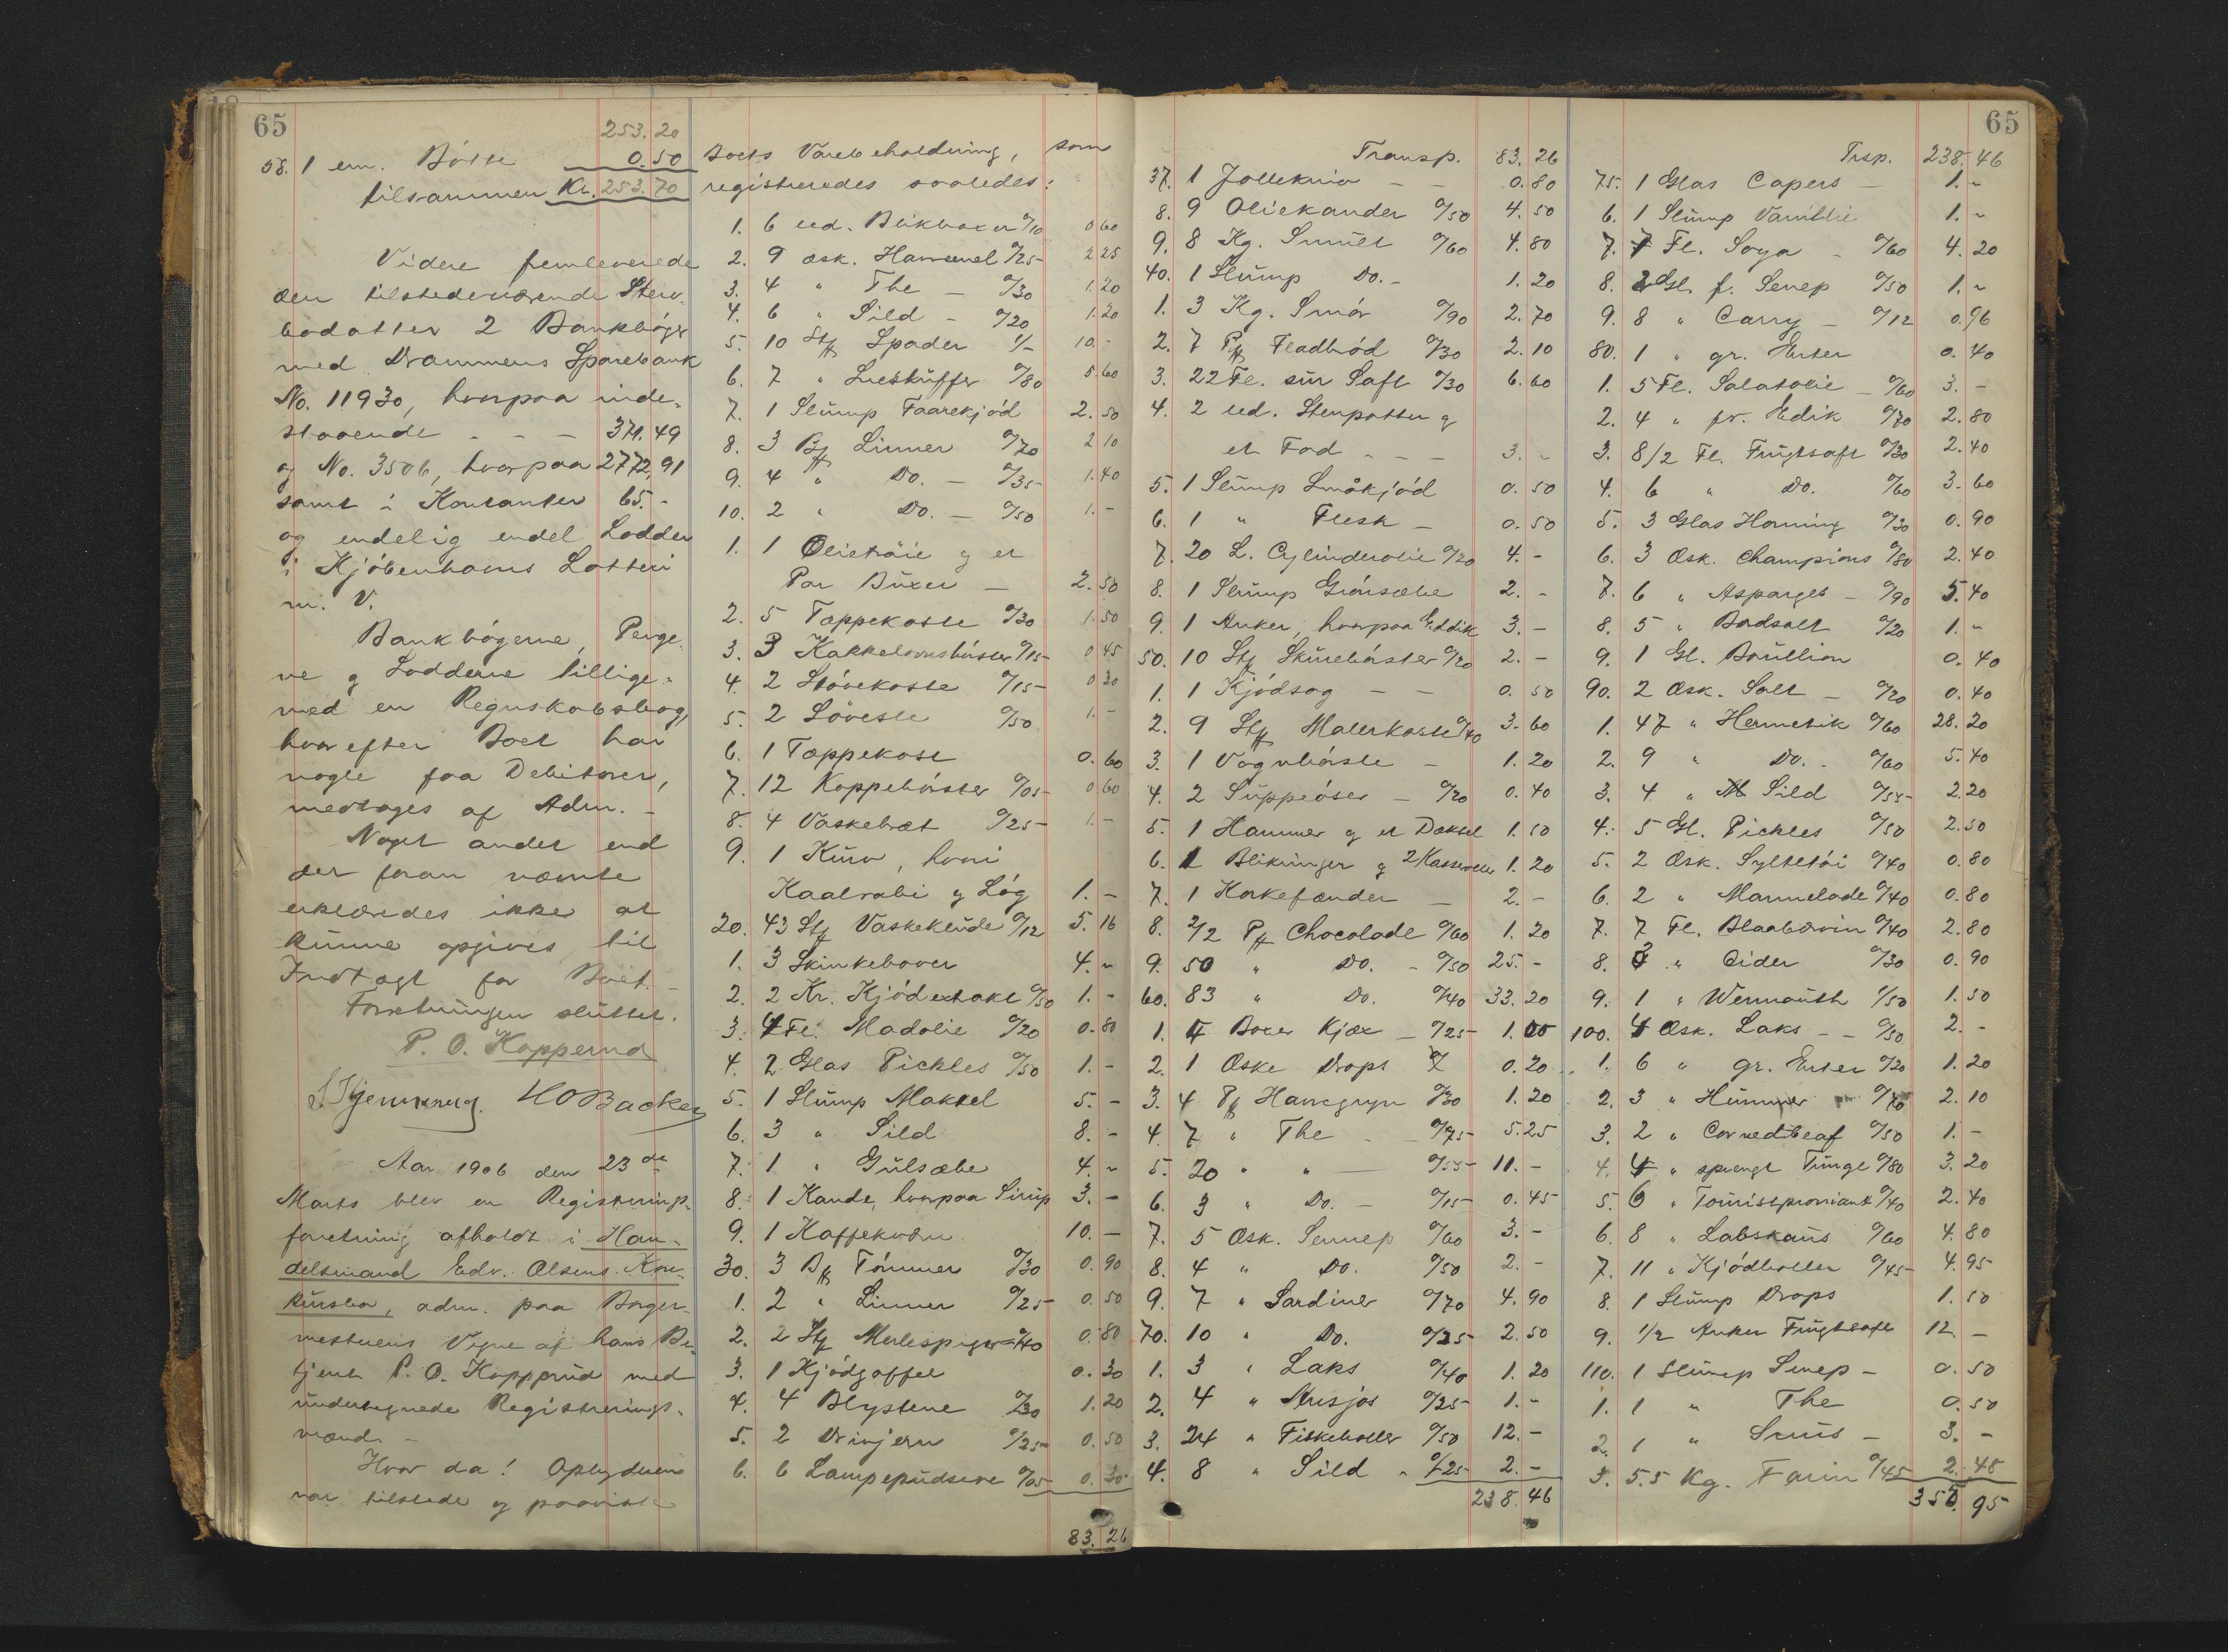 65
253.20
58. 1 em. Bötte 0.50
tilsammen Kr. 253.70
Videre fremleverede
den tilstedeværende Sterv-
bodatter 2 Bankböger
med Drammens Sparebank
No. 11930, hvorpaa inde-
staaende - - - 371.49
og No. 3506, hvorpaa 2772,91
samt i Kontanter 65.-
og endelig endel Lodder
i Kjöbenhavns Lotteri
m. V.
Bankbögerne, Penge-
ne og Lodderne tillige-
med en Regnskabsbog,
hvorefter Boet har
nogle faa Debitorer,
medtages af Adm. -
Noget andet end
det foran nævnte
erklæredes ikke at
kunne opgives til
Indtægt for Boet. -
Forretningen sluttet.
P. O. Kopperud
HOBacker
Aar 1906 den 23de
Marts blev en Registrerings-
forretning afholdt i Han-
delsmand Edv. Olsens Kon-
kursbo, adm. paa Borger-
mesterens Vegne af hans Be-
tjent P. O. Kopperud med
undertegnede Registrerings-
mænd. -
Hvor da! Opbyderen
var tilstede og paaviste
Boets Varebeholdning, som
registreredes saaledes:
1. 6 ud. Blikboxer %10 0.60
2. 9 æsk. Havremel %25 2.25
3. 4 " The - %30 1.20
4. 6 " Sild - %20 1.20
5. 10 Stk Spader 1/- 10.-
6. 7 " Sneskuffer %80 5.60
7. 1 Slump Faarekjöd 2.50
8. 3 Bt Linner %70 2.10
9. 4 " Do. - %35 1.40
10. 2 " Do. - %50 1.-
1. 1 Olietröie og et
Par Buxer - 2.50
2. 5 Tæppekoste %30 1.50
3. 3 Kakkelovnsbörster %15 0.45
4. 2 Stövekoste %15 0.30
5. 2 Löveste %50 1.-
6. 1 Tæppekost 0.60
7. 12 Koppebörster %05 0.60
8. 4 Vaskebræt %25 1.-
9. 1 Kurv, hvori
Kaalrabi og Lög 1.-
20. 43 Stk Vaskeklude %12 5.16
1. 3 Skinkebover 4.-
2. 2 Kr. Kjödextakt %50 1.-
3. 4 Fl. Madolie %20 0.80
4. 2 Glas Pickles %50 1.-
5. 1 Slump Makrel 5.-
6. 3 " Sild 8.-
7. 1 " Gulsæbe 4.-
8. 1 Kande, hvorpaa Sirup 3.-
9. 1 Kaffekværn 10.-
30. 3 Bt Tömmer %30 0.90
1. 2 " Linner %25 0.50
2. 2 Stk Merlespiger %40 0.80
3. 1 Kjödgaffel 0.30
4. 4 Blystene %30 1.20
5. 2 Drivjern %25 0.50
6. 6 Lampepudsere %05 0.30
83.26
65
Transp. 83.26
37. 1 Jollekniv - - 0.80
8. 9 Oliekander %50 4.50
9. 8 Kg. Smult %60 4.80
40. 1 Slump Do. - 1.20
1. 3 Kg. Smör %90 2.70
2. 7 Pk Fladbröd %30 2.10
3. 22 Fl. sur Saft %30 6.60
4. 2 ud. Stenpotter og
et Fad - - - 3.-
5. 1 Slump Småkjöd 0.50
6. 1 " Flesk - 0.50
7. 20 L. Cylinderolie %20 4.-
8. 1 Slump Grönsæbe 2.-
9. 1 Anker, hvorpaa Eddik 3.-
50. 10 Stk Skurebörster %20 2.-
1. 1 Kjödsag - - 0.50
2. 9 Stk Malerkoste %40 3.60
3. 1 Vognbörste - 1.20
4. 2 Suppeöser - %20 0.40
5. 1 Hammer og et Dæksel 1.50
6. 2 Blikringer og 2 Kasseroller 1.20
7. 1 Korkefænder - 2.-
8. 2/2 Pk Chocolade %60 1.20
9. 50 " Do. - %50 25.-
60. 83 " Do. %40 33.20
1. 4 Boxer Kjæx - %25 1.00
2. 1 Æske Drops 0.20
3. 4 Pk Havregryn %30 1.20
4. 7 " The - %75 5.25
5. 20 " " - %55 11.-
6. 3 " Do. - %15 0.45
7. 5 Æsk. Sennep %60 3.-
8. 4 " Do. %50 2.-
9. 7 " Sardiner %70 4.90
70. 10 " Do. %25 2.50
1. 3 " Laks %40 1.20
2. 4 " Ansjos %25 1.-
3. 24 " Fiskeboller %50 12.-
4. 8 " Sild - %25 2.-
238.46
65
Trsp. 238.46
75. 1 Glas Capers - 1.-
6. 1 Slump Vanillie 1.-
7. 7 Fl. Soya - %60 4.20
8. 2 Gl. f. Senep %50 1.-
9. 8 " Carry - %12 0.96
80. 1 " gr. Erter 0.40
1. 5 Fl. Salatolie - %60 3.-
2. 4 " fr. Edik %70 2.80
3. 8/2 Fl. Frugtsaft %30 2.40
4. 6 " Do. %60 3.60
5. 3 Glas Honning %30 0.90
6. 3 Æsk. Champions %80 2.40
7. 6 " Asparges - %90 5.40
8. 5 " Bordsalt %20 1.-
9. 1 Gl. Boullion 0.40
90. 2 Æsk. Salt - %20 0.40
1. 47 " Hermetik %60 28.20
2. 9 " Do. - %60 5.40
3. 4 " Sild %55 2.20
4. 5 Gl. Pickles %50 2.50
5. 2 Æsk. Syltetöi %40 0.80
6. 2 " Marmelade %40 0.80
7. 7 Fl. Blaabærvin %40 2.80
8. 3 " Cider %30 0.90
9. 1 " Wermouth 1/50 1.50
100. 4 Æsk. Laks - - %50 2.-
1. 6 " gr. Erter %20 1.20
2. 3 " Hummer %70 2.10
3. 2 " Cornedbeaf %50 1.-
4. 4 " sprengt Tunge %80 3.20
5. 6 " Touristproviant %40 2.40
6. 8 " Labskaus %60 4.80
7. 11 " Kjödboller %45 4.95
8. 1 Slump Drops 1.50
9. 1/2 Anker Frugtsaft 12.-
110. 1 Slump Senep - 0.50
1. 1 " The 0.50
2. 1 " Snus - 3.-
3. 5.5 Kg. Farin %45 2.48
355.95